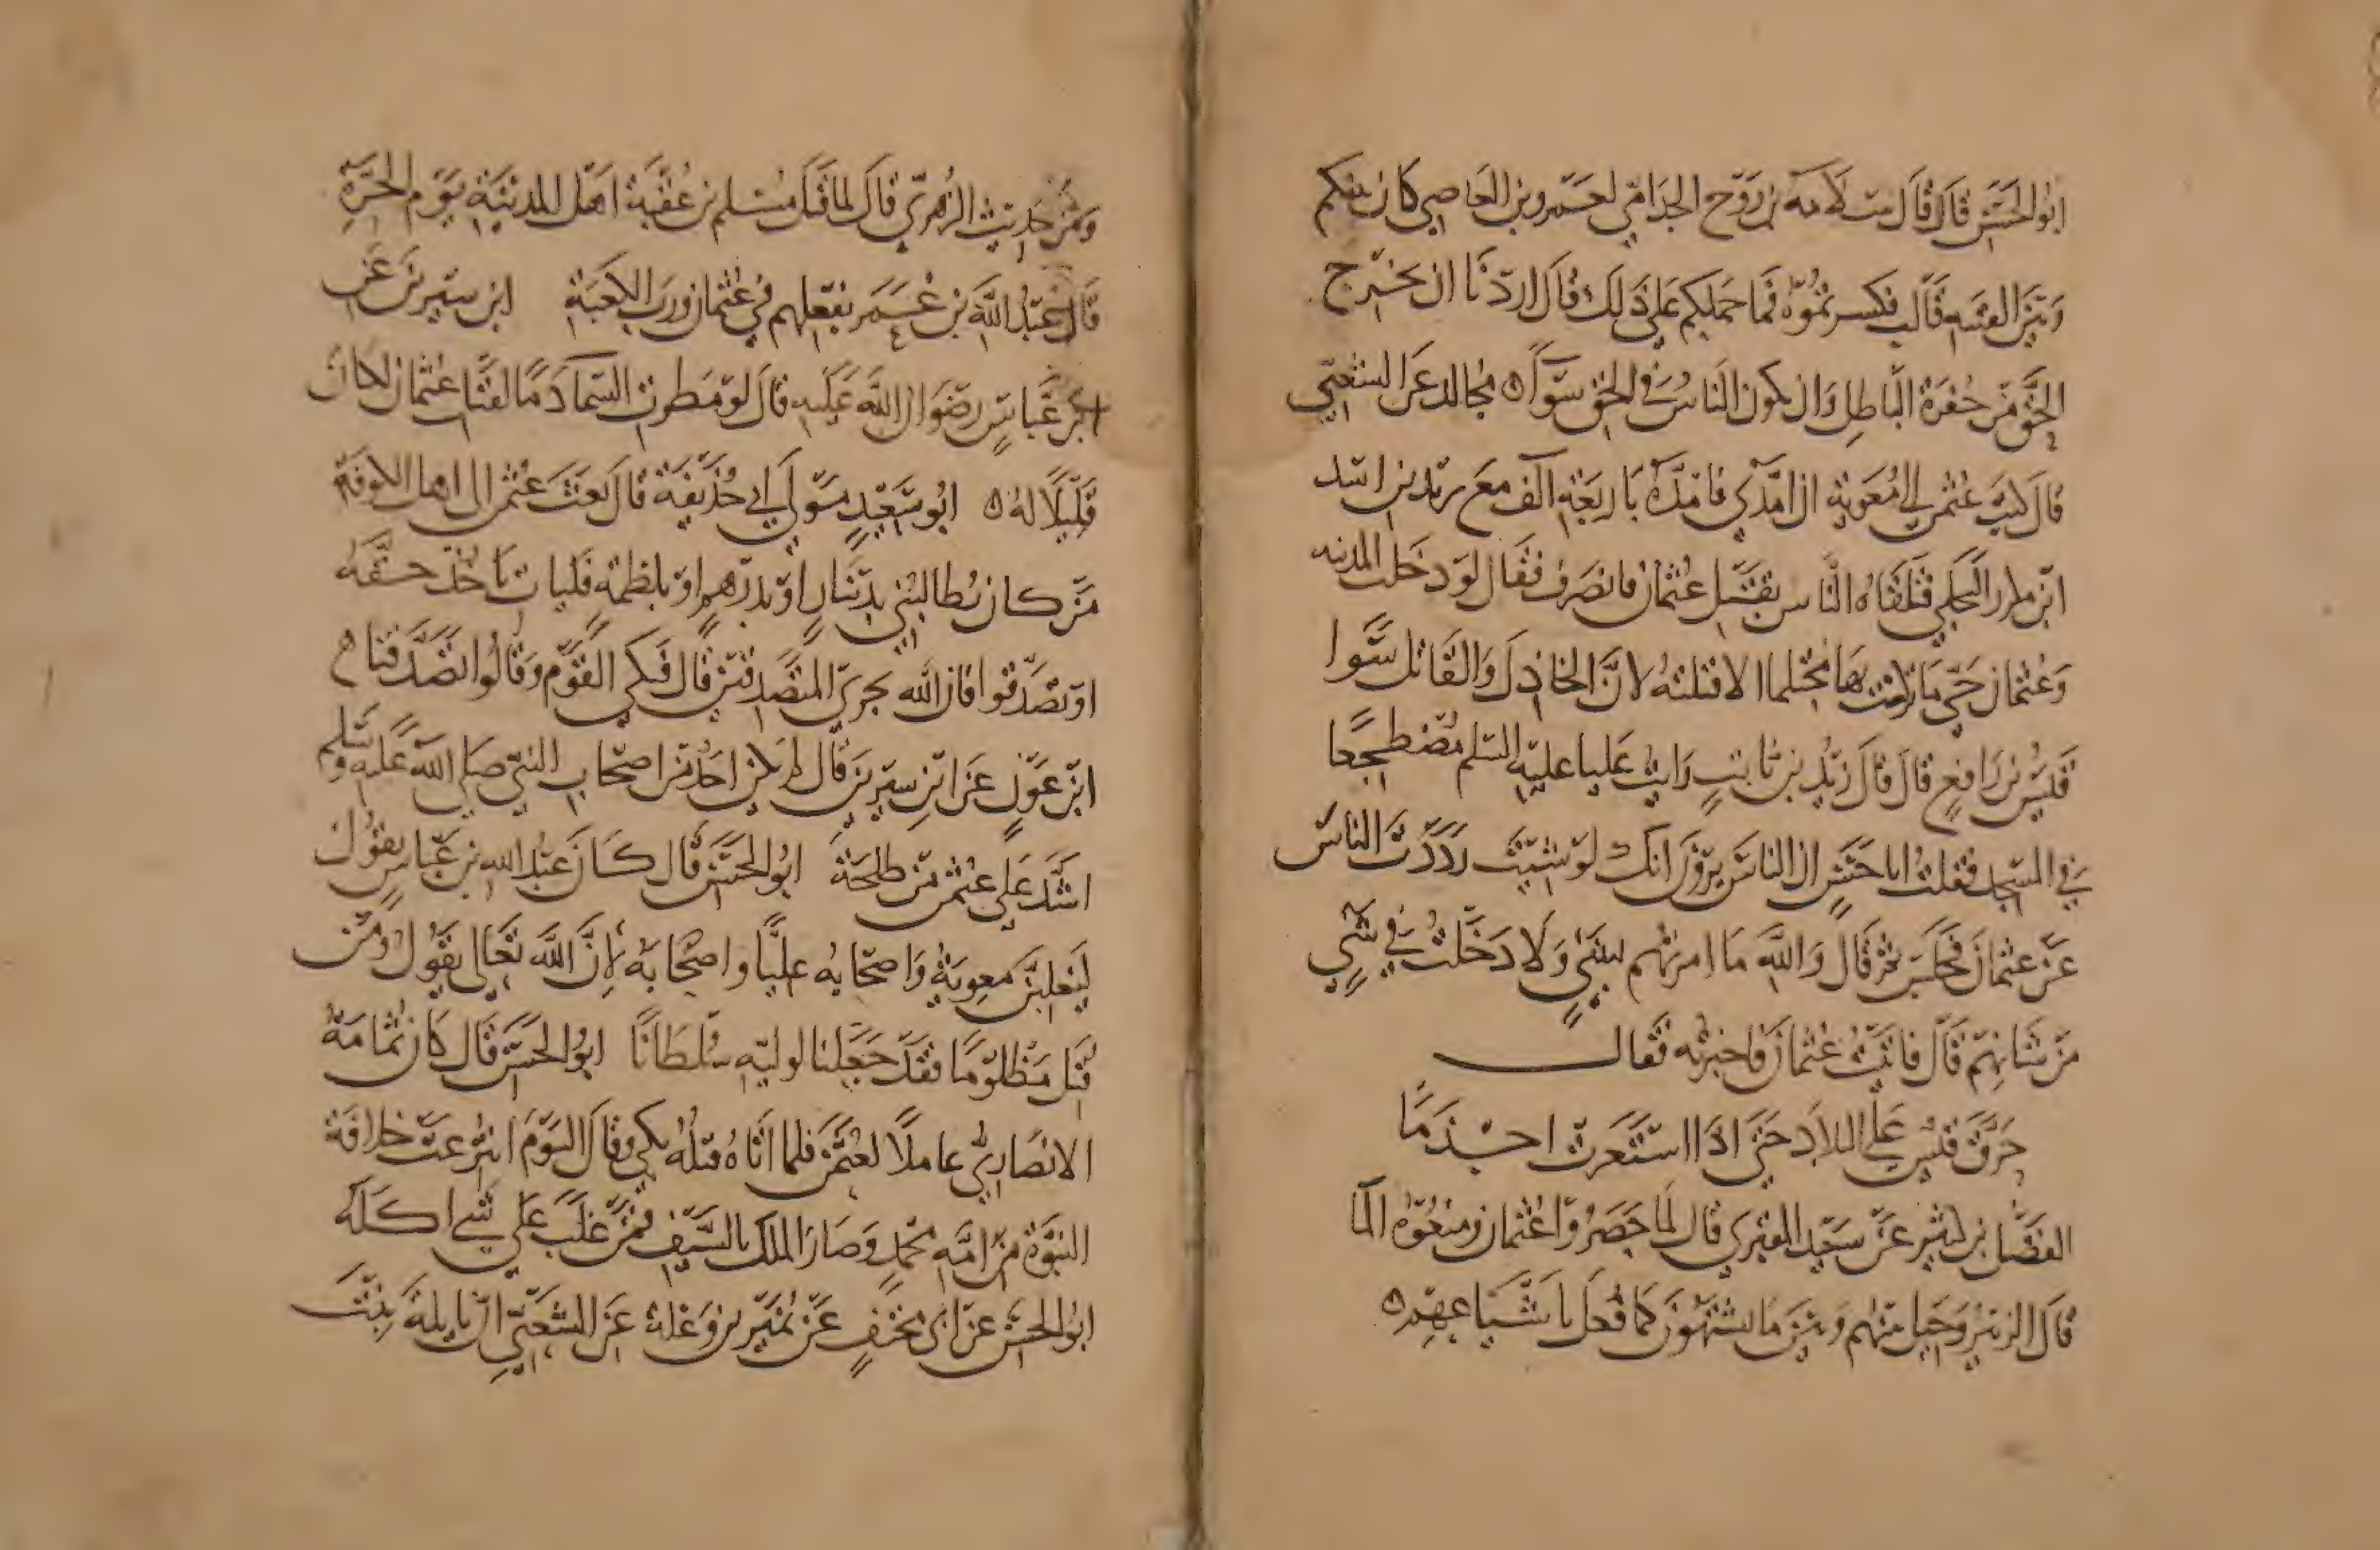 ابُو الحَسَن قَالَ قَالَ سَلامَة بن رَوْح الجذَامّي لعَمرو بن العَاصِي كَان بينكم
وَبَيْنَ الفتنه بَابٌ فكسرتمُوهُ فمَا حملكم عَلى ذَلك قَالَ اردْنَا ان نخرج
الحَقَّ مِنْ حُفرَة البَاطِل وَان يكون النَاسُ في الحَق سَوآءً ه مُجالد عَن الشَعْبي
قالَ كتبَ عُثمن الى مُعَويَة ان امدّني فامَدّهُ بَاربَعَةِ آلف معَ يزيد بن اسَد
ابن كرز البَجلي فتلقَاهُ النَّاس بقَتل عُثمان فانصَرفَ فقَال لو دخلت المدينه
وَعُثمان حَيّ مَا تركت بهَا مُحتلما الا قتلتهُ لانَّ الخَاذلَ وَالقَاتل سَوا
قَيسُ بن رَافعٍ قالَ قالَ زَيْد بن ثابتٍ رَايتُ عَليا عليهِ السَلم مُضطجعا
في المسجِد فقلتُ ابا حَسَنٍ ان الناسَ يرَوْنَ انكَ لو شِيتَ رَدَدْتَ الناسَ
عَنْ عثمانَ فجَلسَ ثمَّ قَالَ وَاللهِ مَا امرتهُم بشَيءٍ وَلا دَخَلتُ في شيءٍ
مِنْ شانِهِم قَالَ فاتَيْتُ عُثمانَ فاخبرتُه فقَال
حَرَّقَ قَيسُ عَليَّ البلادَ حَتَى اذَا استَعَرتْ اجْذمَا
الفضل بن كثير عَنْ سَعيد المقبري قال لما حَصَرُوا عُثمان ومنعُوهُ المآ
قالَ الزبَيرُ وَحِيلَ بَينهُم وَبَيْنَ مَا يَشتَهُونَ كمَا فُعلَ باشيَاعِهِم ه
وَمِنْ حَديث الزُهريّ قالَ لما قتَلَ مُسلم بن عُقبَة اهْل المدينَة يَوْم الحَرَّة
قَالَ عَبْدُ اللهِ بن عُمَر بفعلهم في عُثمان وَربّ الكعبَةِ ابن سيرين عَن
ابن عَباسٍ رضوَان الله عَليه قالَ لوْ مَطرت السَماء دَمًا لقتل عُثمان لكان
قَلِيلًا لهُ ه ابُو سَعيْدٍ مَوْلى ابي حُذيفَة قالَ بعَثَ عثمن الى اهل الكوفَة
مَنْ كان يُطالبُني بديْنَارٍ اوْ بدرْهمٍ اوْ بلطمَةٍ فليات يَاخُذْ حقَّهُ
اوْ تَصَدقُوا فان الله يجزي المتصَدقينَ قالَ فبَكى القَوْم وَقَالُوا تصَدَّقنا ه
ابن عَوْنٍ عَن ابن سيرينَ قالَ لم يكن احَدٌ مِنْ اصحَاب النبّي صَلى الله عَليه وَسَلم
اشَدّ عَلى عثمن مِنْ طلحَةَ ابُو الحسَن قَال كَانَ عَبدُ الله بن عَبَّاسٍ يقُول
ليَغلِبَنَّ معوِيَةُ وَاصحَابُه عَليًّا وَاصحَابَهُ لِانَّ اللهَ تعَالى يقُولُ وَمَنْ
قُتِل مَظلُومًا فقَدْ جَعَلنا لوليّه سُلطَانًا ابُو الحسَن قَال كَان ثمَامَة
الانصَارِيُّ عاملًا لعُثمن فلما اتَاهُ قتلُهُ بكى وقَالَ اليَوْمَ انتُزعتْ خلافَة
النبُوَّة مِنْ امَّةِ مُحمدٍ وَصَارَ الملك بالسَيْف فمَنْ غلَبَ عَلى شيء اكلَهُ
ابُو الحسَن عَن ابي مخنَفٍ عَنْ نُمَيْر بن وَعْلة عَن الشَعْبي انّ نايلَة بنتَ